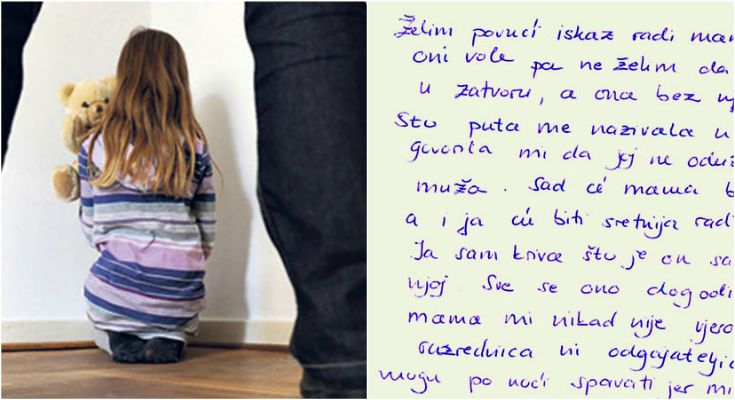 Želim povući iskaz radi mam
oni vole pa ne želim da
u zatvoru, a ona bez nj
Sto puta me nazivala u
govorila mi da joj ne oduz
muža. Sad će mama b
a i ja ću biti sretnija rad
Ja sam kriva što je on sa
njoj. Sve se ono dogodi
mama mi nikad nije vjero
razrednica ni odgajatelji
mogu po noći spavati jer mi